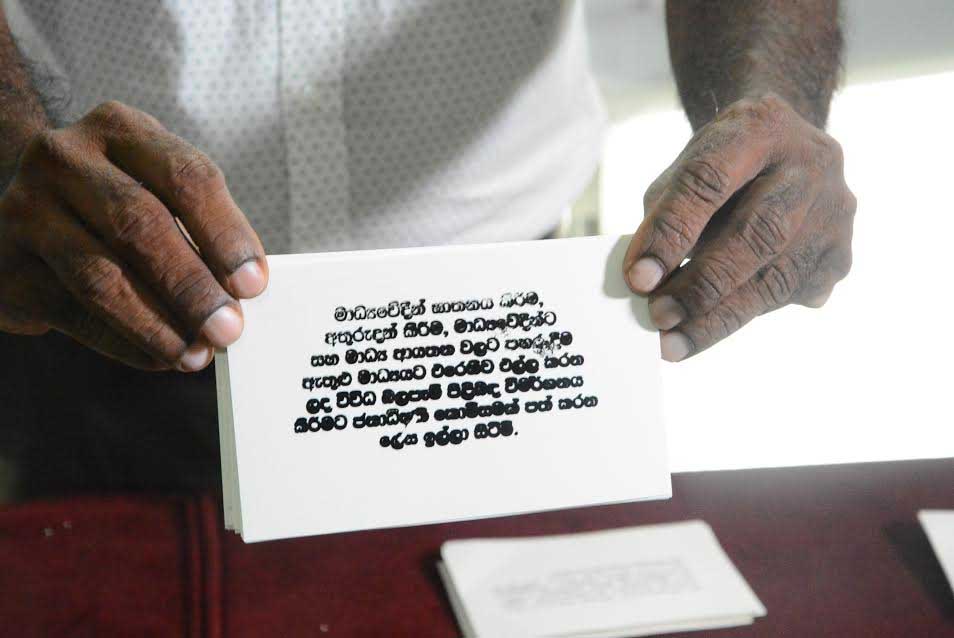 මාධ්‍යවේදීන් ඝාතනය කිරීම,
අතුරුදන් කිරීම, මාධ්‍යවේදීන්ට
සහ මාධ්‍ය ආයතන වලට පහරදීම්
ඇතුළු මාධ්‍යයට එරෙහිව එල්ල කරන
ලද විවිධ බලපෑම් පිළිබඳ විමර්ශනය
කිරීමට ජනාධිපති කොමිසමක් පත් කරන
ලෙස ඉල්ලා සිටිමි.